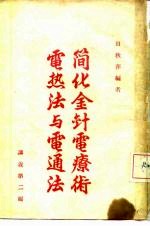 秋容編者
简化金针電療術
電热法与電通法
講義第二編